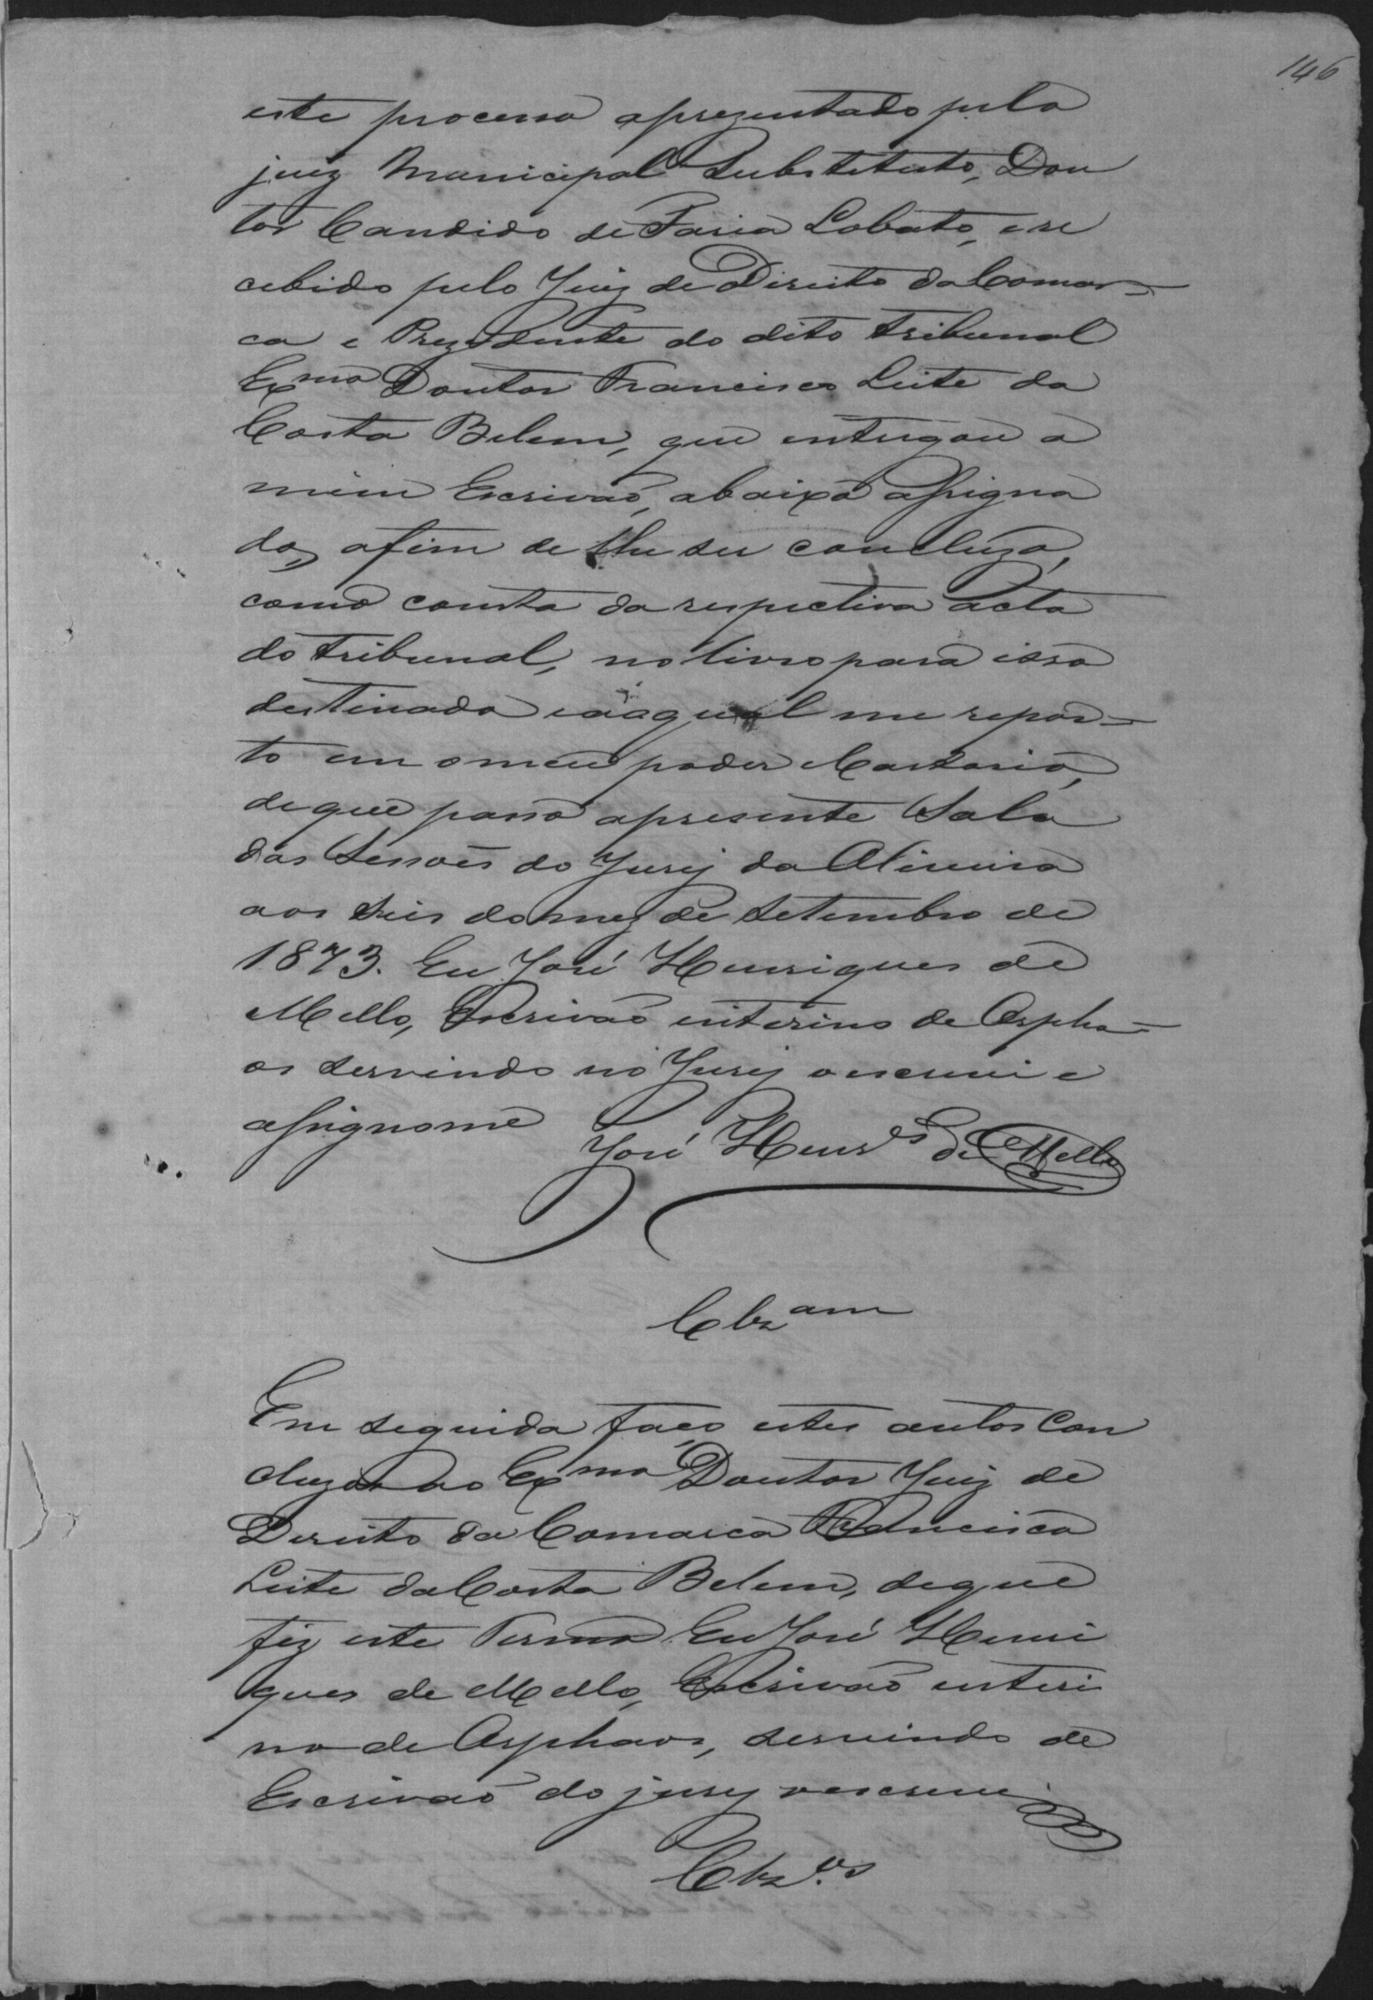 146
este processo aprezentado pelo
juiz Municipal Substituto, Dou
tor Candido de Faria Lobato, e re
cebido pelo Juiz de Direito da Comar=
ca e Prezidente do dito tribunal
Exmo Doutor Francisco Leite da
Costa Belem, que entregou a
mim Escrivaõ, abaixo assigna
do, afim de lhe ser concluzo,
como consta da respectiva acta
do tribunal, no livro para isso
destinado e a qual me repor=
to em o meu poder e Cartorio,
de que passo a presente Sala
das Sessoẽs do Jury da Oliveira
aos seis do mez de Setembro de
1873. Eu José Henriques de
Mello, Escrivaõ interino de Orpha=
os servindo no Jury o escrevi e
assignome
José Henr.es de Mello
Clzam
Em seguida faço estes autos Con
cluzos ao Exmo Doutor Juiz de
Direito da Comarca Francisco
Leite da Costa Belem, de que
fiz este Termo. Eu José Henri
ques de Mello, Escrivaõ interi
no de Orphaos, servindo de
Escrivaõ do jury o escrevi
Clz.os